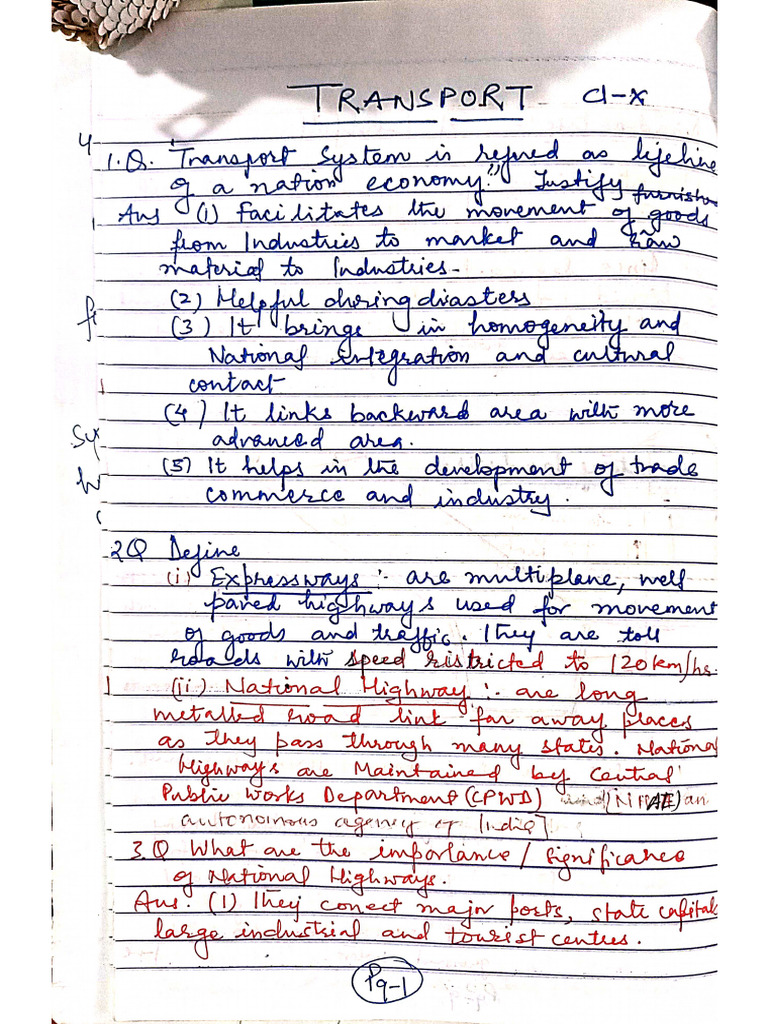 TRANSPORT Cl-X
4
1.Q. Transport System is refered as lifeline
of a nation economy." Justify furnish
Ans (1) Facilitates the movement of goods
from Industries to market and Raw
material to Industries-
(2) Helpful during diasters
fi
(3) It brings in homogeneity and
National integration and cultural
contact
(4) It links backward area with more
Sy
advanced area.
(5) It helps in the development of trade
commerce and industry.
2Q Define
(i) Expressways :- are multiplane, well
paved highways used for movement
of goods and traffic. They are toll
roads with speed ristricted to 120km/hs.
(ii) National Highway :- are long
metalled road link far away places
as they pass through many states. National
Highways are Maintained by Central
Public Works Department (CPWD) an
autonoinous agency of India]
3.Q What are the importance/significance
of National Highways.
Ans. (1) They conect major ports, state capitals
large industrial and tourist centres.
Pg-1